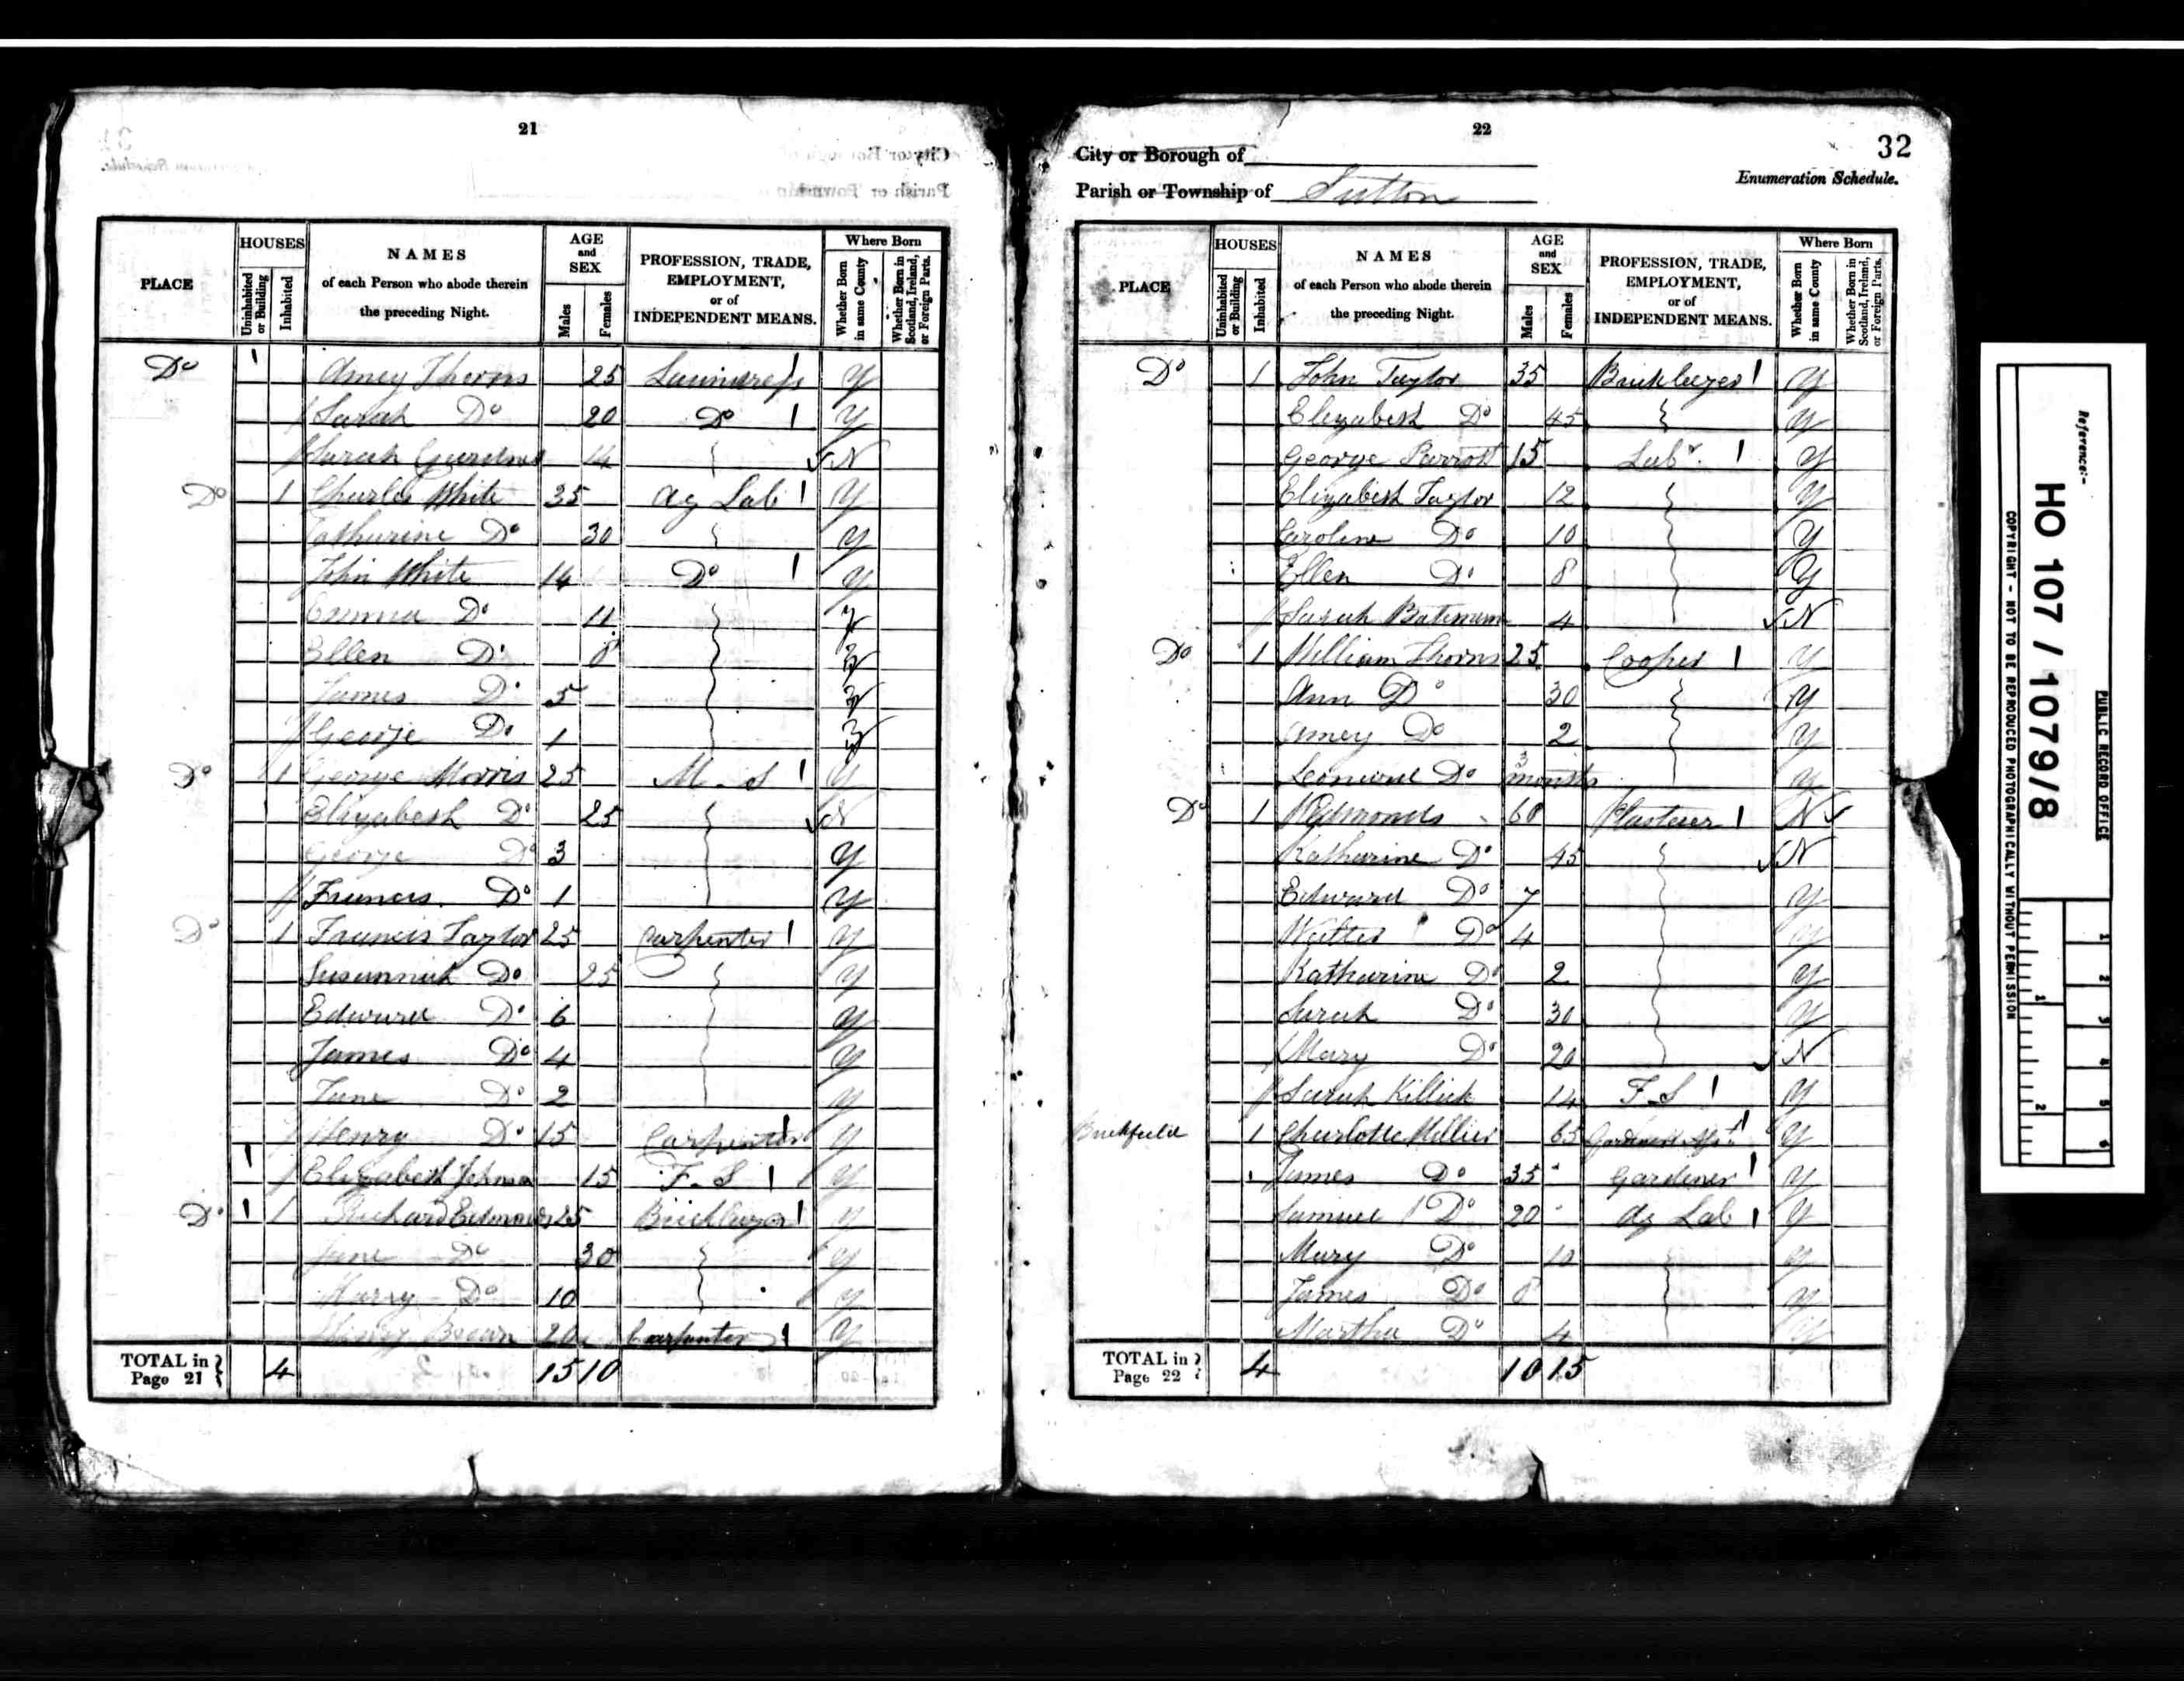 21
HOUSES
NAMES
AGE
and
SEX
PROFESSION, TRADE,
EMPLOYMENT,
or of
INDEPENDENT MEANS.
Where Born
PLACE
Uninhabited
or Building
Inhabited
of each Person who abode therein
the preceding Night.
Males
Females
Whether Born
in same County
Whether Born in
Scotland, Ireland,
or Foreign Parts.
Do 1 Amey Thorns 25 Laundress 1 Y
Sarah Do 20 Do 1 Y
Sarah 14 N
Do 1 Charles White 35 Ag Lab 1 Y
Catharine Do 30 Y
John White 14 Do 1 Y
Emma Do 11
Ellen Do 8
James Do 5
George Do 1
Do 1 George Morris 25 M.S 1 Y
Elizabeth Do 25 N
George Do 3 Y
Francis Do 1 Y
Do 1 Francis Taylor 25 Carpenter 1 Y
Susannah Do 25 Y
Edward Do 6 Y
James Do 4 Y
Jane Do 2 Y
Henry Do 15 Carpenter Y
1 Elizabeth 15 F.S 1 Y
Do 1 1 Richard 25 Bricklayer 1 Y
Jane Do 30 Y
Harry Do 10 Y
Henry Brown 20 Carpenter 1 Y
TOTAL in
Page 21 4 15 10
22
32
City or Borough of
Parish or Township of Sutton
Enumeration Schedule.
HOUSES
NAMES
AGE
and
SEX
PROFESSION, TRADE,
EMPLOYMENT,
or of
INDEPENDENT MEANS.
Where Born
PLACE
Uninhabited
or Building
Inhabited
of each Person who abode therein
the preceding Night.
Males
Females
Whether Born
in same County
Whether Born in
Scotland, Ireland,
or Foreign Parts.
Do 1 John Taylor 35 Bricklayer 1 Y
Elizabeth Do 45 Y
George Parrott 15 Labr. 1 Y
Elizabeth Taylor 12 Y
Caroline Do 10 Y
Ellen Do 8 Y
Sarah Bateman 4 N
Do 1 William Thorns 25 Cooper 1 Y
Ann Do 30 Y
Amey Do 2 Y
Leonard Do 3 months Y
Do 1 Edmonds 60 Plasterer 1 N
Katharine Do 45 N
Edward Do 7 Y
Walter Do 4 Y
Katharine Do 2 Y
Sarah Do 30 Y
Mary Do 20 N
Sarah Killick 14 F.S 1 Y
Brickfield 1 Charlotte Hillier 65 Y
James Do 35 Gardener 1 Y
Samuel Do 20 Ag Lab 1 Y
Mary Do 10 Y
James Do 8 Y
Martha Do 4 Y
TOTAL in
Page 22 4 10 15
Reference:-
HO 107 / 1079/8
PUBLIC RECORD OFFICE
COPYRIGHT - NOT TO BE REPRODUCED PHOTOGRAPHICALLY WITHOUT PERMISSION
1 2
1 2 3 4 5 6